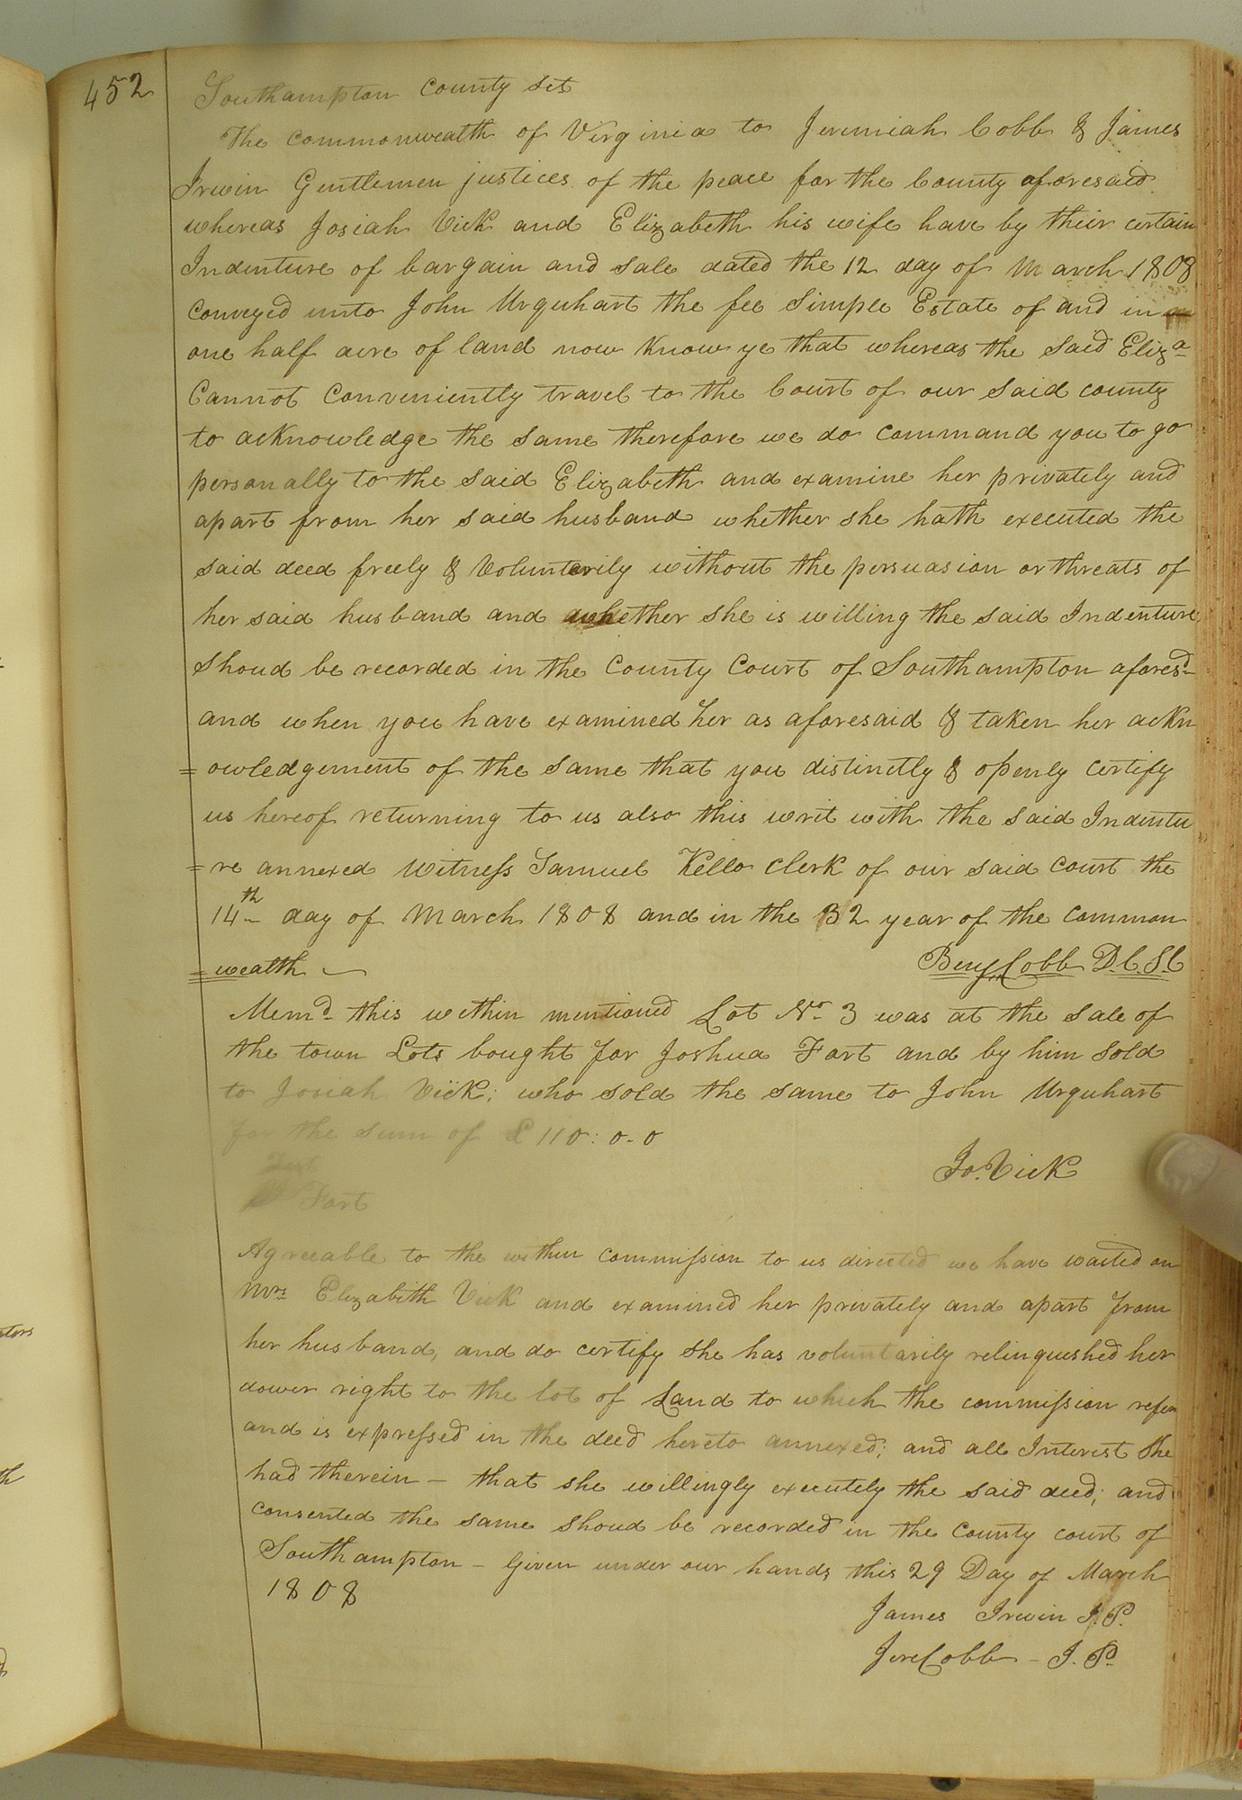 452
Southampton County Sct
The Commonwealth of Virginia to Jeremiah Cobb & James
Irwin Gentlemen justices of the peace for the County aforesaid
whereas Josiah Vick and Elizabeth his wife have by their certain
Indenture of bargain and sale dated the 12 day of March 1808
Conveyed unto John Urquhart the fee Simple Estate of and in
one half acre of land now Know ye that whereas the said Eliza
Cannot Conveniently travel to the Court of our said County
to acknowledge the same therefore we do command you to go
personally to the said Elizabeth and examine her privately and
apart from her said husband whether she hath executed the
said deed freely & Voluntarily without the persuasion or threats of
her said husband and whether she is willing the said Indenture
Shoud be recorded in the County Court of Southampton aforesd
and when you have examined her as aforesaid & taken her ackn
=owledgement of the same that you distinctly & openly certify
us hereof returning to us also this writ with the said Indentu
=re annexed Witness Samuel Kello Clerk of our said Court the
14th day of March 1808 and in the 32 year of the Common
=wealth
Benj Cobb D.C.S.C
Memd this within mentioned Lot No 3 was at the sale of
the town Lots bought for Joshua Fort and by him sold
to Josiah Vick; who sold the same to John Urquhart
for the sum of £110:0-0
Jo. Vick
Test
Fort
Agreeable to the within commission to us directed we have waited on
Mrs Elizabeth Vick and examined her privately and apart from
her husband, and do certify she has voluntarily relinquished her
dower right to the lot of Land to which the commission refers
and is expressed in the deed hereto annexed; and all Interest she
had therein – that she willingly executely the said deed; and
consented the same shoud be recorded in the County court of
Southampton – Given under our hands this 29 Day of March
1808
James Irwin J.P.
Jere Cobb – J.P.